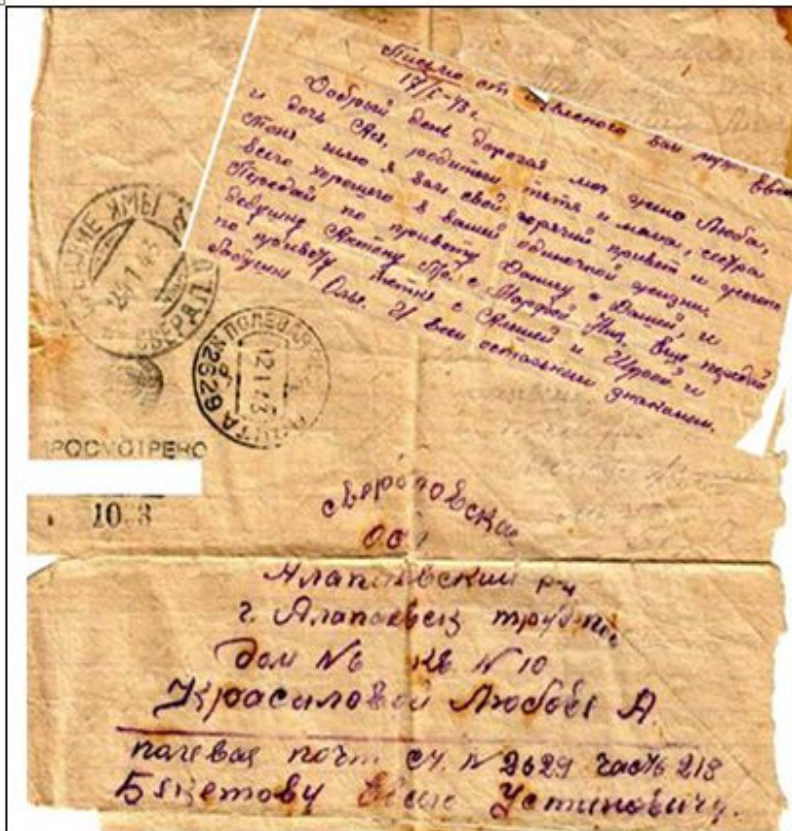 Письмо от вашего мужа
17/I-43 г.
Добрый день дорогая моя жена Люба,
и дочь Ася, родители тятя и мама, сестра
Тоня шлю я вам свой горячий привет и
всего хорошего в вашей одиночной жизни.
Передай по привету Данилу с Дашей, и
дедушке Антону с Марфой Еще передай
по привету с и Шурой и
бабушки Оле. И всем остальным знакомым.
ЯМЫ
24 1 43
СВЕРДЛ
ПОЛЕВАЯ
№2629
12 1 43
ПОЧТА
ПРОСМОТРЕНО
10.3
Свердловская
обл
Алапаевский р-н
г. Алапаевск
дом №6 кв №10
Красиловой Любове А.
полевая почт ст. №2629 часть 218
Бекетову Устиновичу.